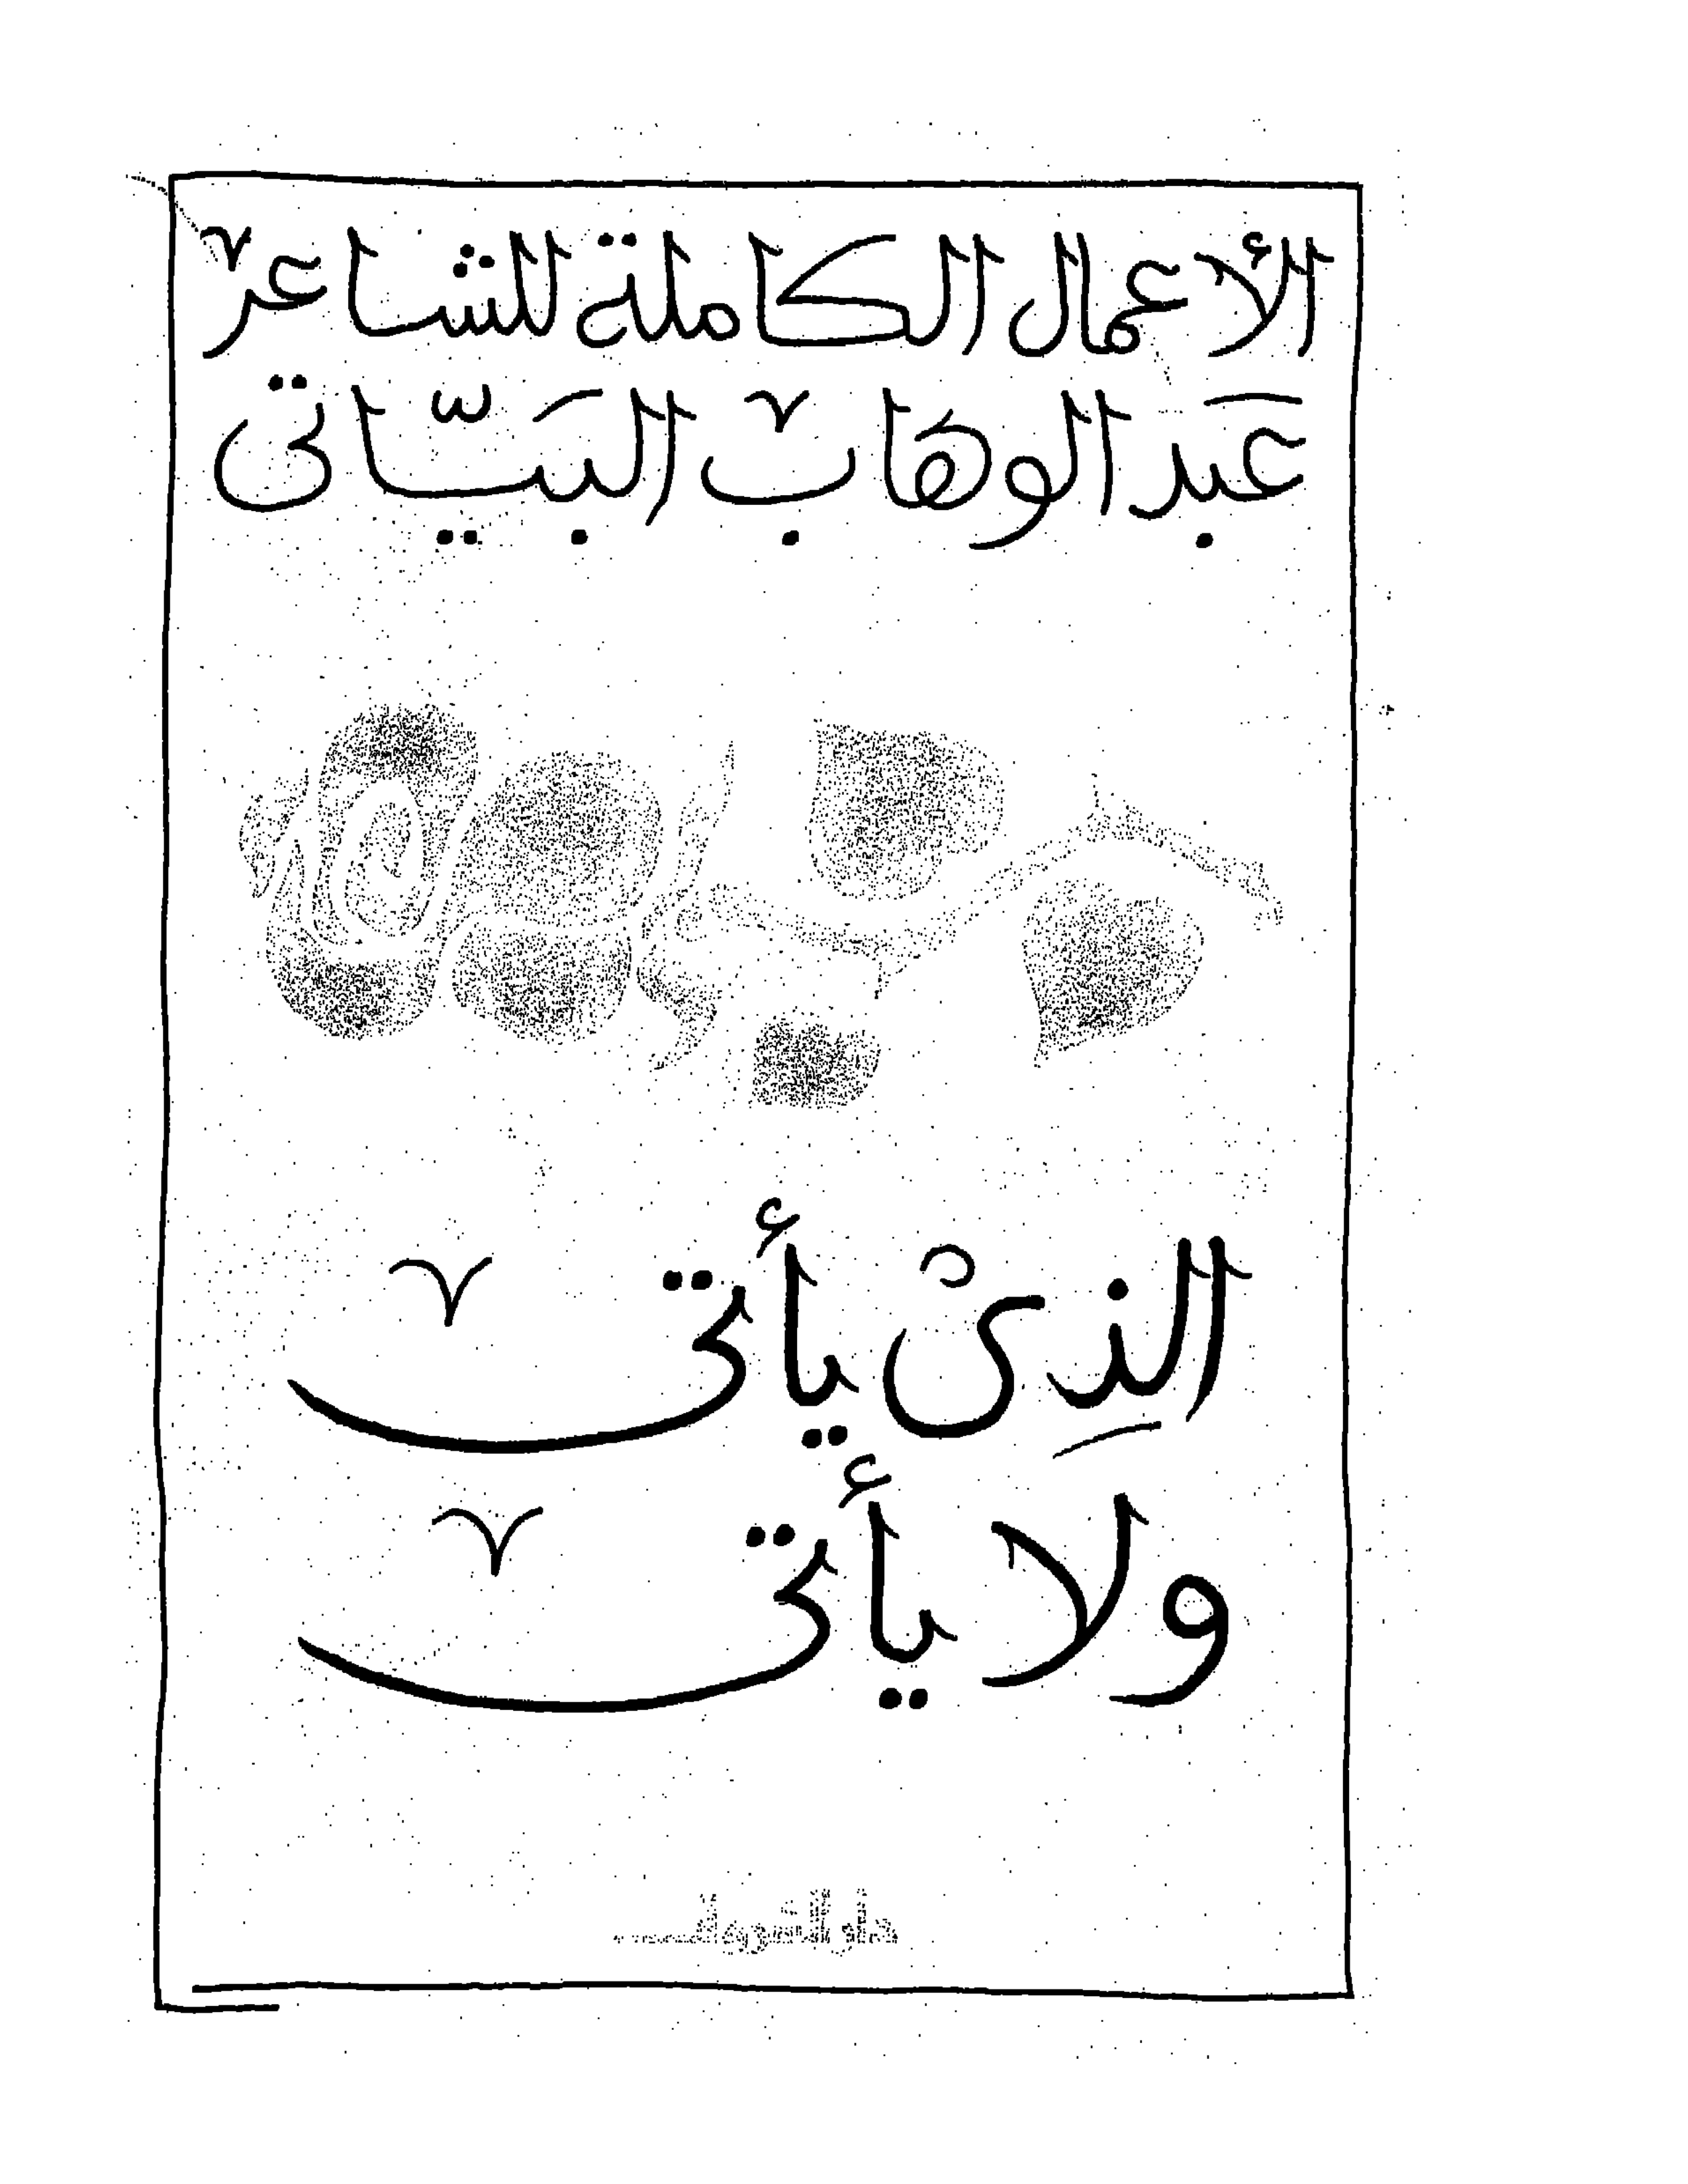 الأعمال الكاملة للشاعر
عَبد الوهاب البَيّاتى
الذِىْ يأتى
ولا يأتى
دار الشروق